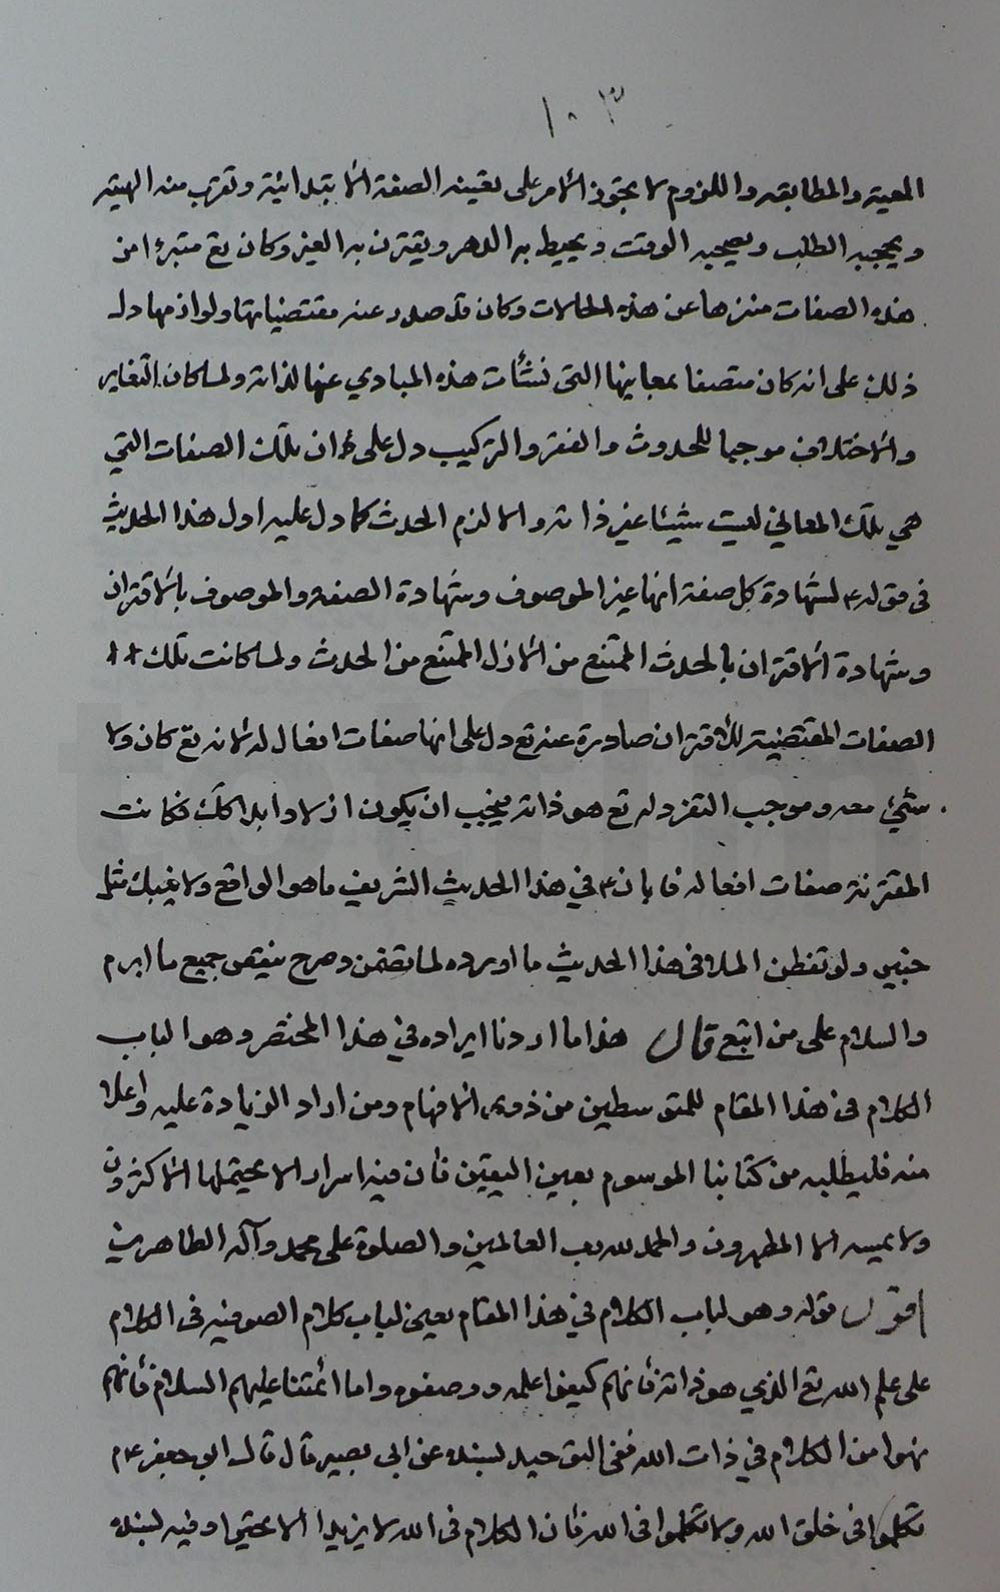 ١٠٣
المعية والمطابقة واللزوم لا يجوز الامر على تعينه الصفة الابتدائية وتقرب منه الهيئة
ويحجبه الطلب ويصحبه الوقت ويحيط به الدهر ويقترن به الغير وكان تع متبرءا من
هذه الصفات منزها عن هذه الحالات وكان قد صدر عنه مقتضياتها ولوازمها دل
ذلك على انه كان متصفا بمعانيها التى نشأت هذه المبادي عنها لذاته ولما كان التغاير
والاختلاف موجبا للحدوث والفقر والتركيب دل على ان تلك الصفات التي
هي تلك المعاني ليست شيئا غير ذاته والا لزم الحدث كما دل عليه اول هذا الحديث
فى قوله ع لشهادة كل صفة انها غير الموصوف وشهادة الصفة والموصوف بالاقتران
وشهادة الاقتران بالحدث الممتنع من الازل الممتنع من الحدث ولما كانت تلك
الصفات المقتضية للاقتران صادرة عنه تع دل على انها صفات افعال له لانه تع كان ولا
شيئ معه وموجب التفرد له تع هو ذاته فيجب ان يكون ازلا وابدا كك فكانت
المقترنة صفات افعاله فابان ع في هذا الحديث الشريف ما هو الواقع ولا ينبئك مثل
خبير ولو تفطن الملا فى هذا الحديث ما اورده لما تضمن وصرح بنقض جميع ما ابرم
والسلام على من اتبع قال هذا ما اردنا ايراده في هذا المختصر وهو لباب
الكلام فى هذا المقام للمتوسطين من ذوى الافهام ومن اراد الزيادة عليه واعلا
منه فليطلبه من كتابنا الموسوم بعين اليقين فان فيه اسرارا لا يحتملها الاكثرون
ولا يمسه الا المطهرون والحمد لله رب العالمين والصلوة على محمد وآله الطاهرين
اقول قوله وهو لباب الكلام في هذا المقام يعنى لباب كلام الصوفية فى الكلام
على علم الله تع الذي هو ذاته فانهم كيفوا علمه ووصفوه واما ائمتنا عليهم السلام فانهم
نهوا من الكلام في ذات الله ففى التوحيد بسنده عن ابى بصير قال قال ابو جعفر ع م
تكلموا فى خلق الله ولا تكلموا فى الله فان الكلام فى الله لا يزيد الا تحيرا وفيه بسنده